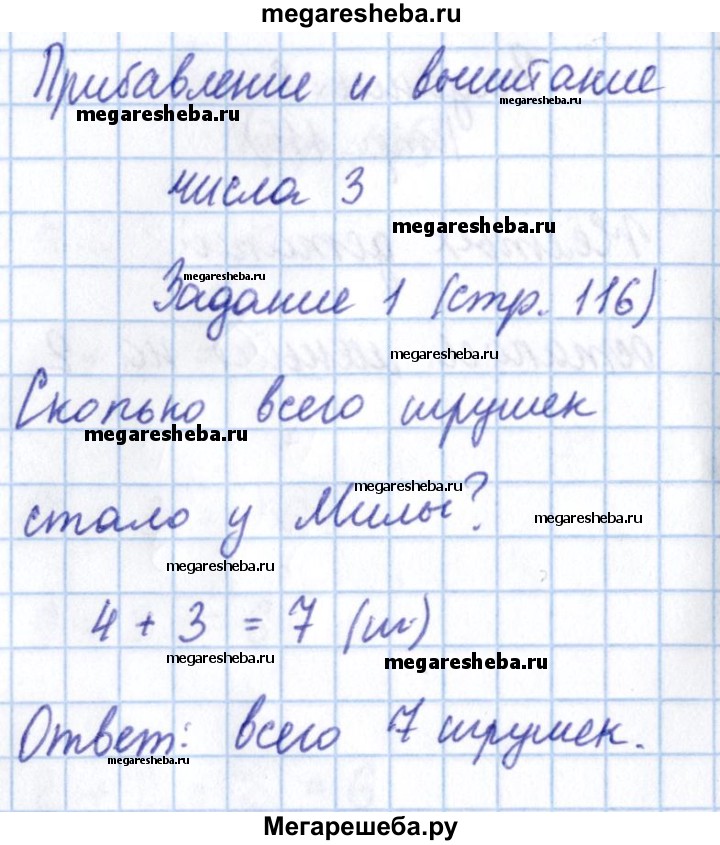 megaresheba.ru
Прибавление и вычитание
megaresheba.ru
megaresheba.ru
числа 3
megaresheba.ru
megaresheba.ru
Задание 1 (стр. 116)
megaresheba.ru
Сколько всего игрушек
megaresheba.ru
megaresheba.ru
стало у Милы?
megaresheba.ru
megaresheba.ru
4 + 3 = 7 (иг.)
megaresheba.ru
megaresheba.ru
Ответ: всего 7 игрушек.
megaresheba.ru
Мегарешеба.ру